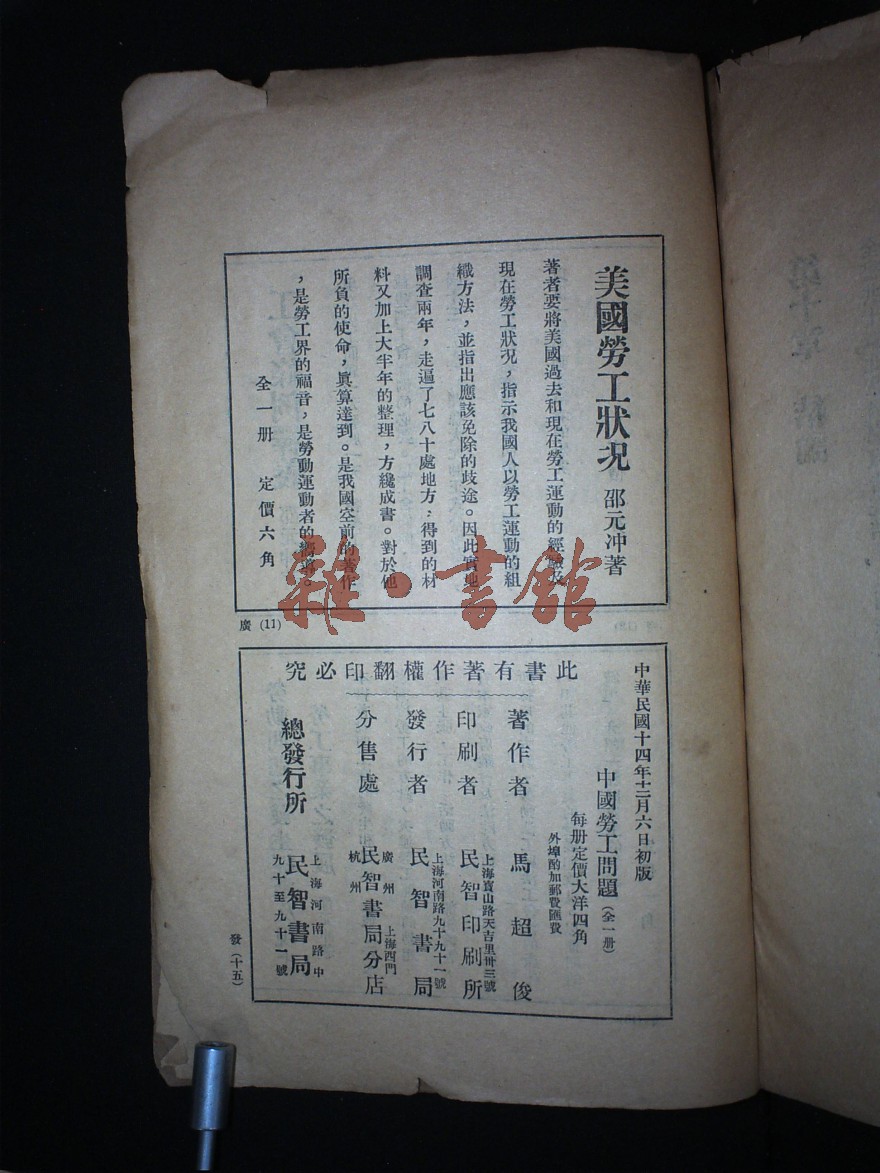 美國勞工狀況 邵元冲著
著者要將美國過去和現在勞工運動的經驗及
現在勞工狀況，指示我國人以勞工運動的組
織方法，並指出應該免除的歧途。因此實地
調查兩年，走遍了七八十處地方，得到的材
料又加上大半年的整理，方纔成書。對於他
所負的使命，眞算達到。是我國空前的著作
，是勞工界的福音，是勞動運動者的嚮導。
全一册 定價六角
廣(11)
雜·書館
中華民國十四年十二月六日初版
中國勞工問題（全一册）
每册定價大洋四角
外埠酌加郵費匯費
此書有著作權翻印必究
著作者 馬超俊
印刷者 上海寶山路天吉里卅三號 民智印刷所
發行者 上海河南路九十九十一號 民智書局
分售處 廣州 杭州 民智書局分店 上海西門
總發行所 上海河南路中 九十至九十一號 民智書局
發(十五)